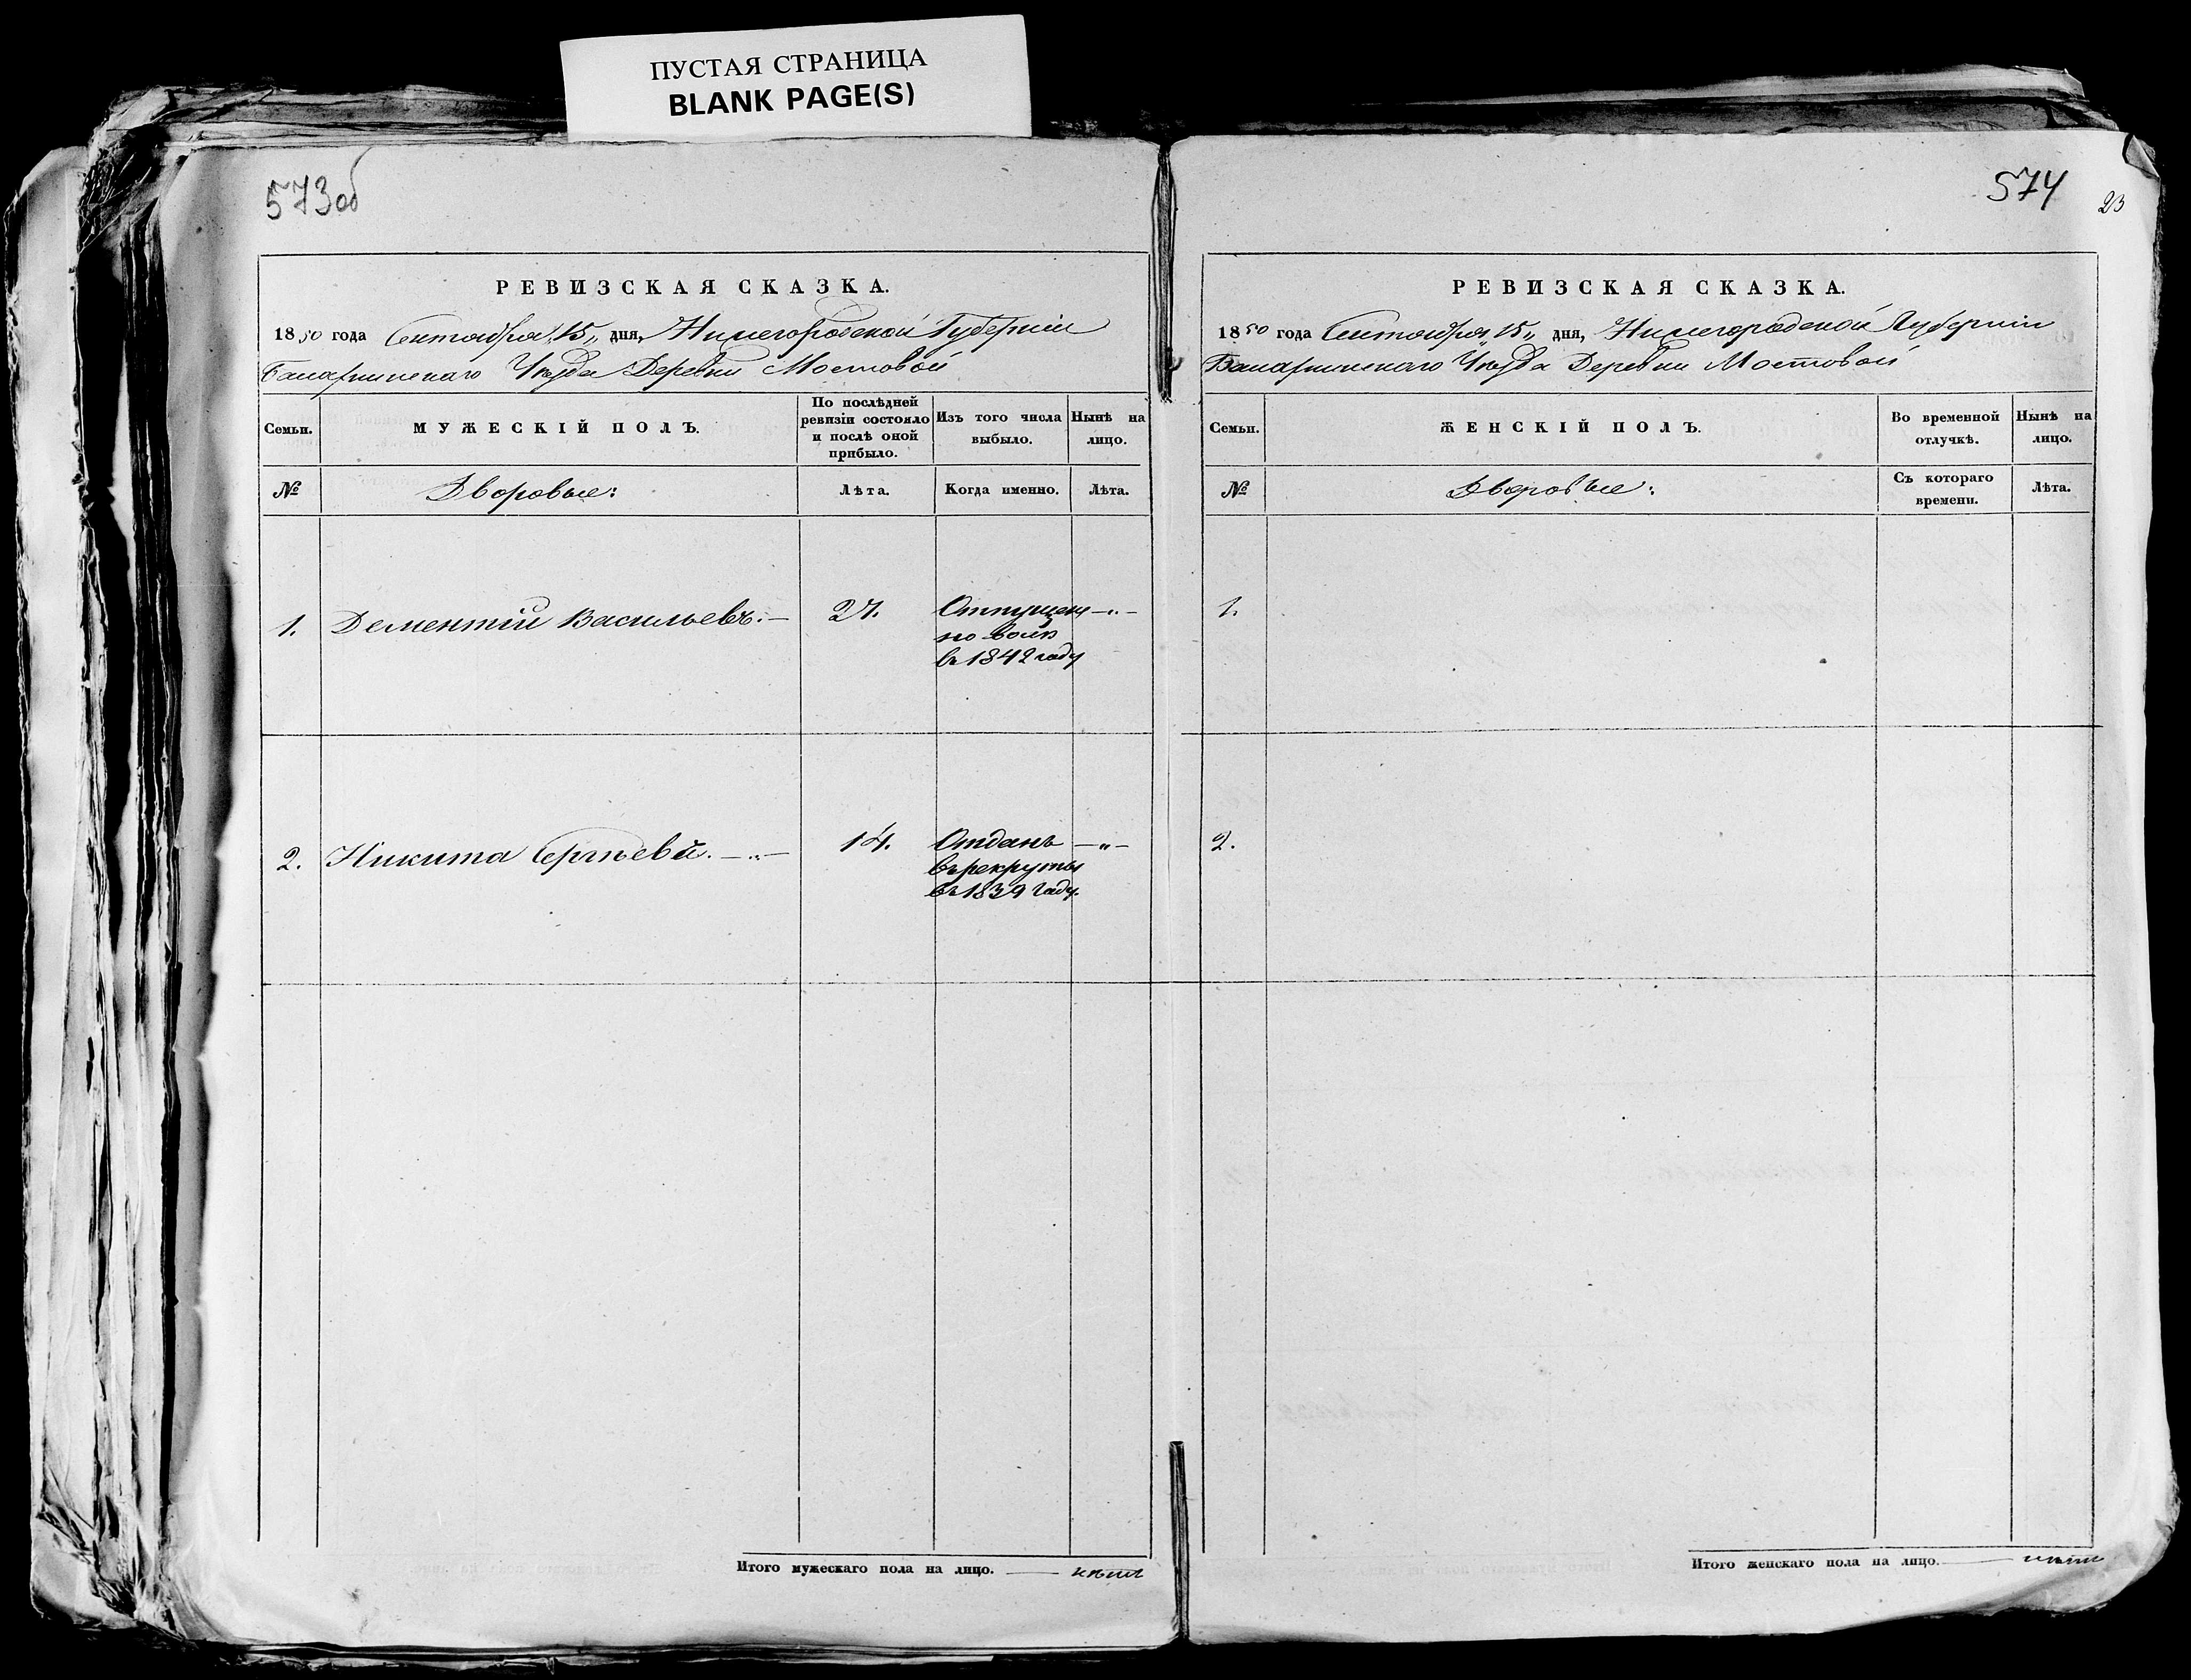 ПУСТАЯ СТРАНИЦА
BLANK PAGE(S)
573об
РЕВИЗСКАЯ СКАЗКА.
1850 года Сентября „15„ дня, Нижегородской Губерніи
Уѣзда Деревни Мостовой
Семьи.
МУЖЕСКІЙ ПОЛЪ.
По послѣдней
ревизіи состояло
и послѣ оной
прибыло.
Изъ того числа
выбыло.
Нынѣ на
лицо.
№
Дворовые:
Лѣта.
Когда именно.
Лѣта.
1. Дементій Васильевъ. — 27. Отпущенъ — „ —
на волю
въ 1842 году
2. Никита Сергѣевъ. — „ — 14. Отданъ — „ —
въ рекруты
въ 1839 году.
Итого мужескаго пола на лицо. — нѣтъ
574
23
РЕВИЗСКАЯ СКАЗКА.
1850 года Сентября „15„ дня, Нижегородской Губерніи
Уѣзда Деревни Мостовой
Семьи.
ЖЕНСКІЙ ПОЛЪ.
Во временной
отлучкѣ.
Нынѣ на
лицо.
№
Дворовые:
Съ котораго
времени.
Лѣта.
1.
2.
Итого женскаго пола на лицо. — нѣтъ